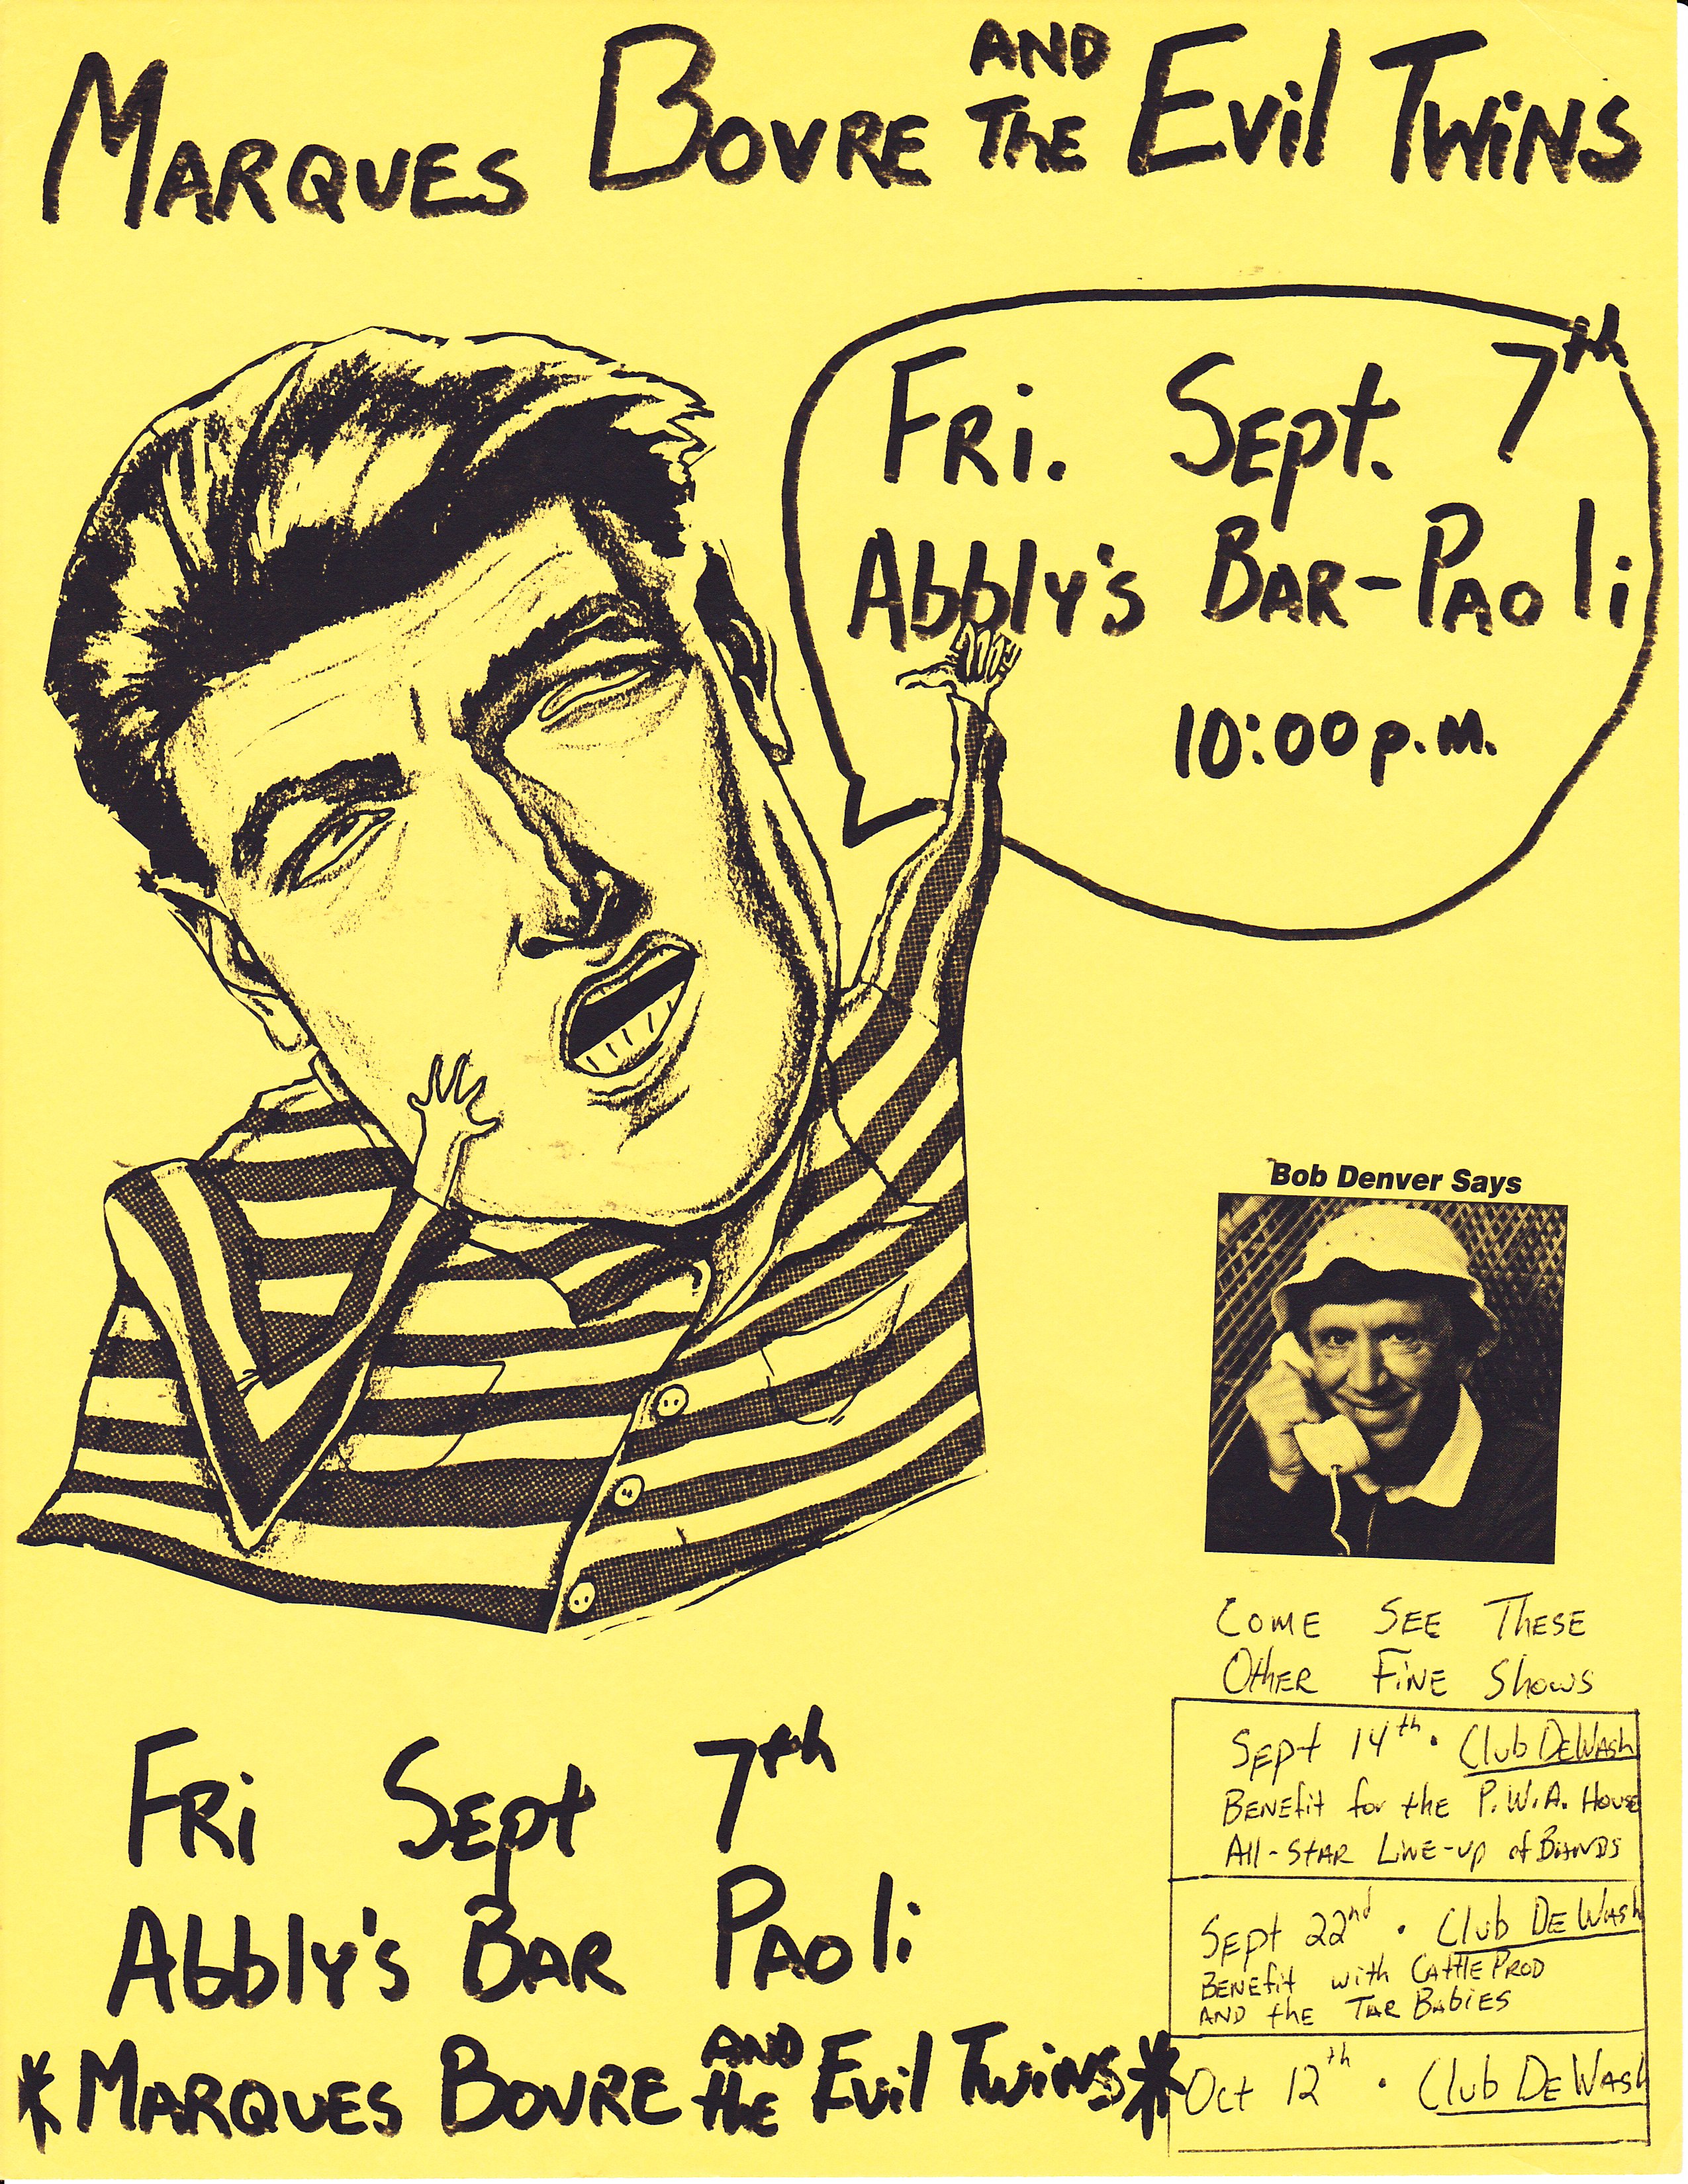 MARQUES BOVRE AND THE EVil TWiNS
FRi. SEpt. 7th
Abbly's BAR-PAoli
10:00 p.m.
Bob Denver Says
COME SEE THESE
OthER FiNE Shows
SEpt 14th · Club DeWash
BENEfit for the P.W.A. House
All-StAR LiNE-up of BANDS
SEpt 22nd · Club DE Wash
BENEfit with CAttlE PROD
AND thE TAR BAbiES
Oct 12th · Club DE Wash
FRi SEpt 7th
Abbly's BAR PAoli
*MARQUES BOVRE AND thE Evil TwiNS*